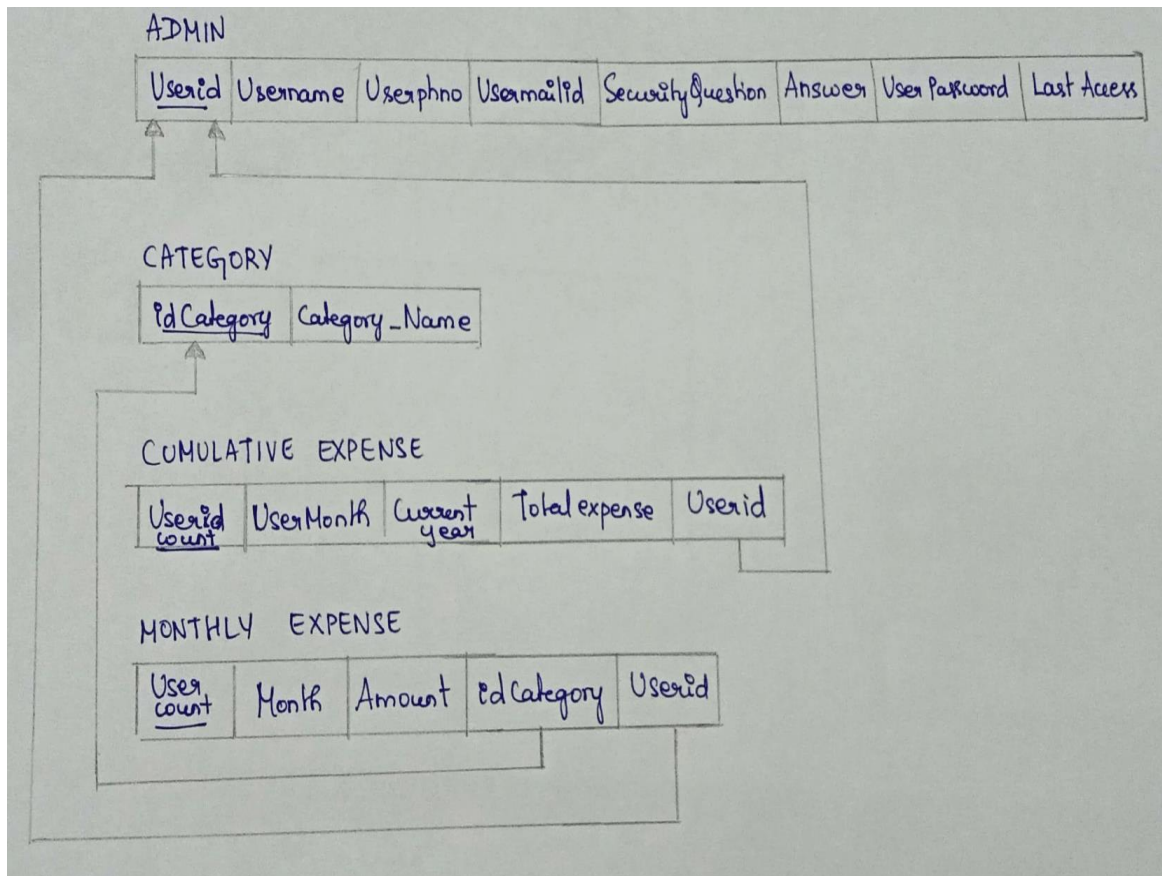 ADMIN
Userid Username Userphno Usermailid SecurityQuestion Answer User Password Last Access
CATEGORY
idCategory Category_Name
CUMULATIVE EXPENSE
Userid UserMonth Current Total expense Userid
count year
MONTHLY EXPENSE
User Month Amount idCategory Userid
count